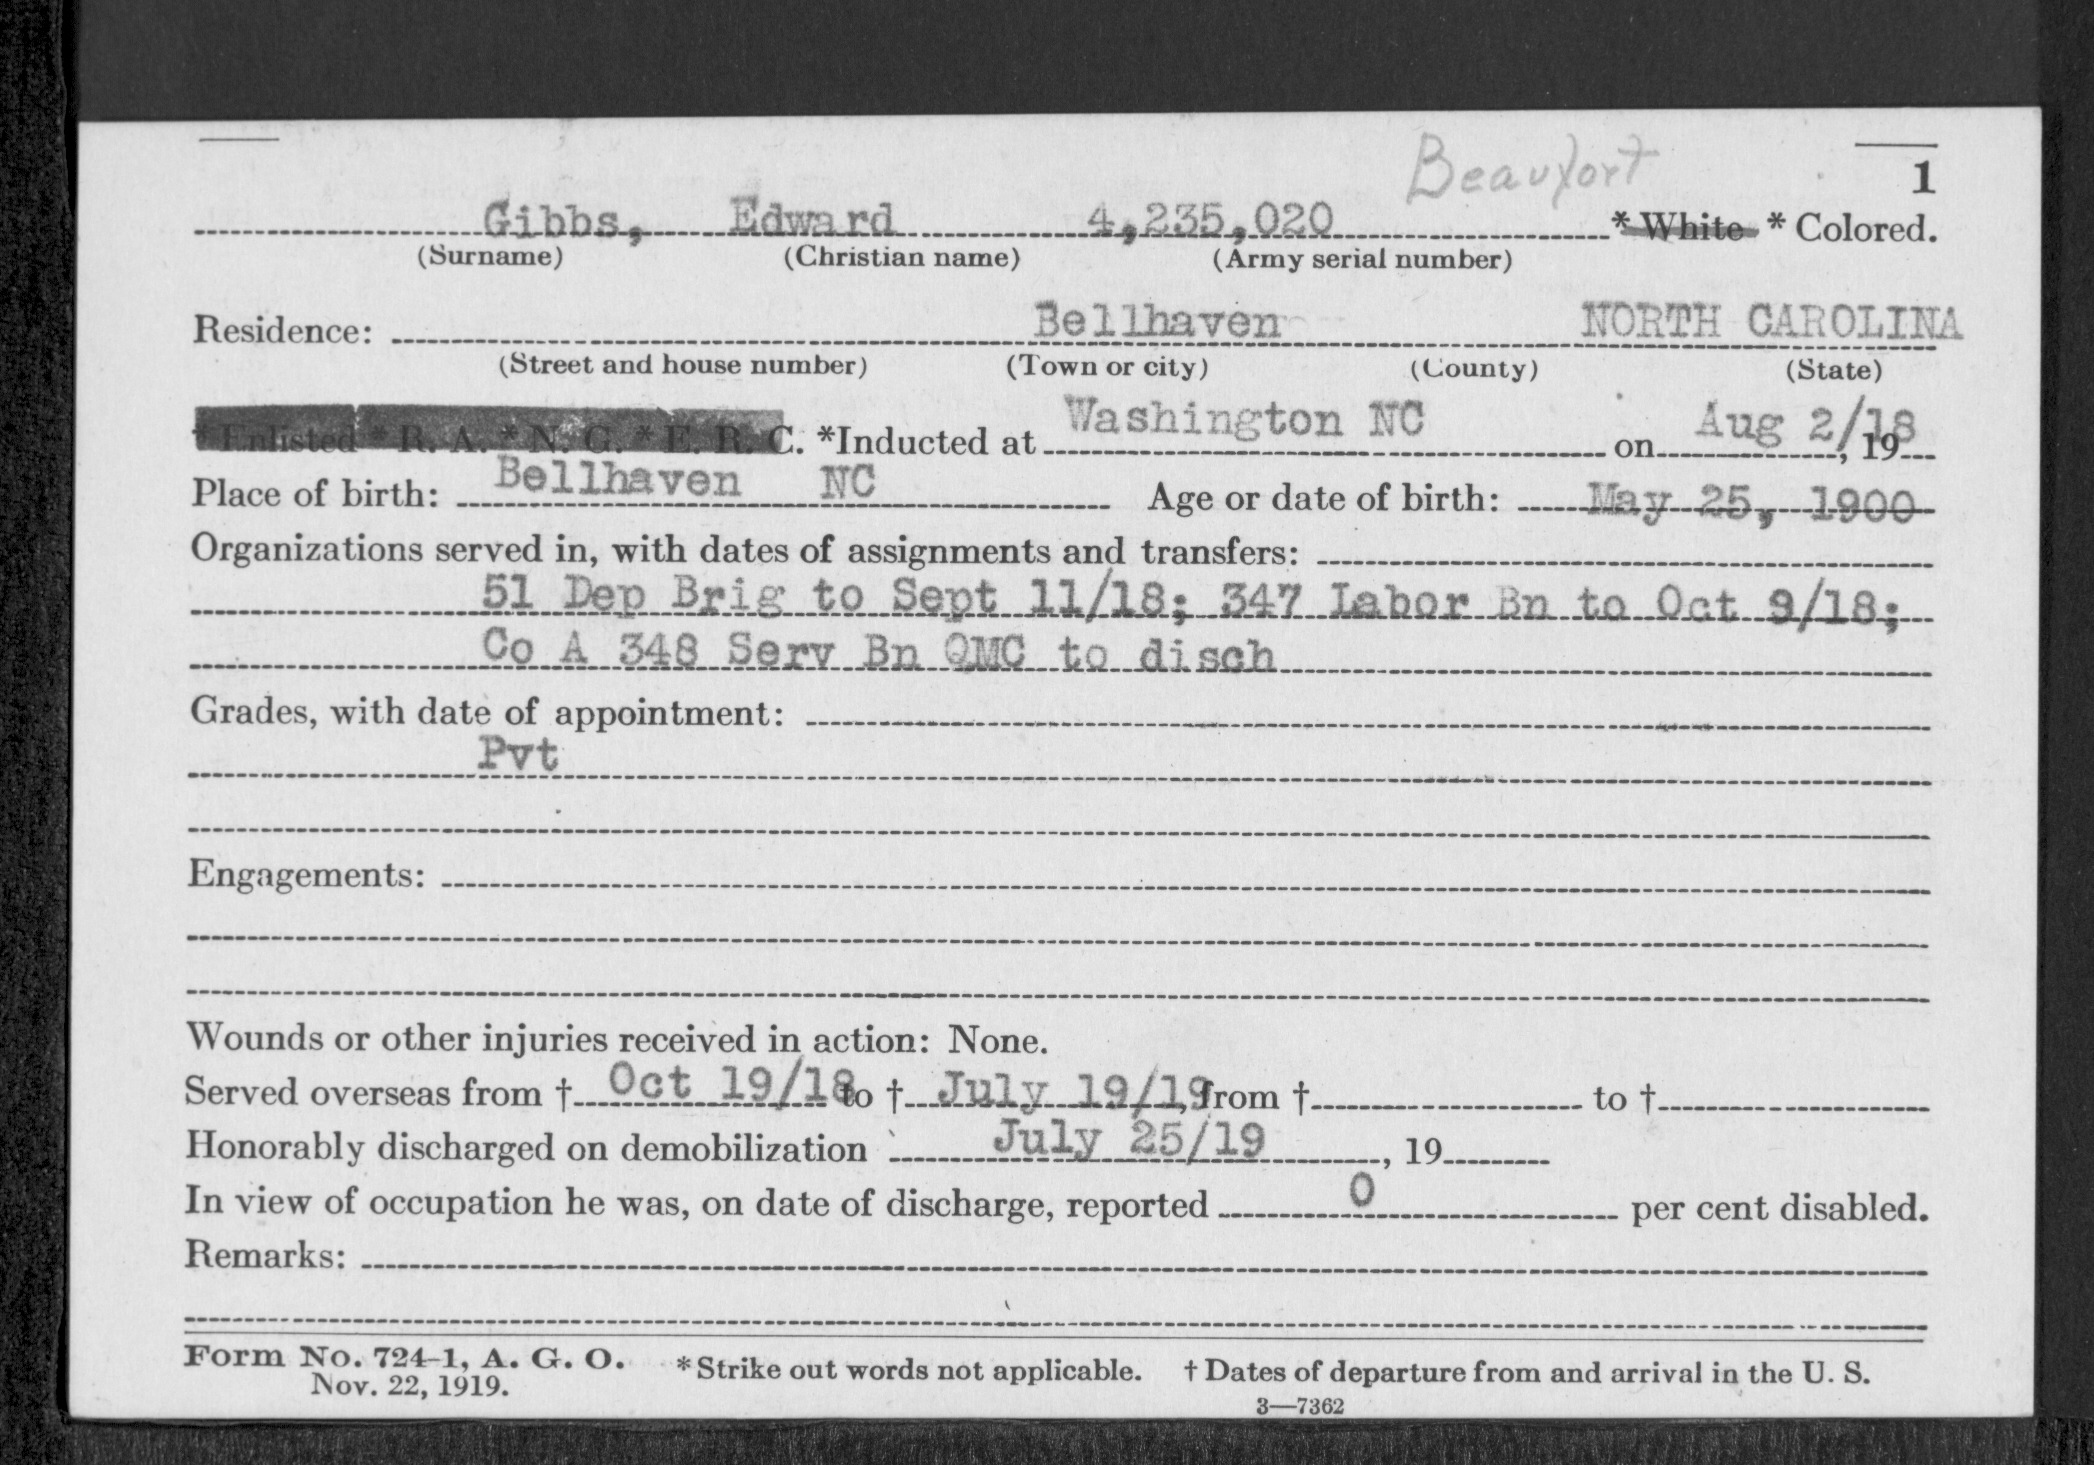 Beaufort
1
Gibbs, Edward 4,235,020 * White * Colored.
(Surname) (Christian name) (Army serial number)
Residence: Bellhaven NORTH CAROLINA
(Street and house number) (Town or city) (County) (State)
* Enlisted * R. A. * N. G. * E. R. C. *Inducted at Washington NC on Aug 2/18, 19
Place of birth: Bellhaven NC Age or date of birth: May 25, 1900
Organizations served in, with dates of assignments and transfers:
51 Dep Brig to Sept 11/18; 347 Labor Bn to Oct 9/18;
Co A 348 Serv Bn QMC to disch
Grades, with date of appointment:
Pvt
Engagements:
Wounds or other injuries received in action: None.
Served overseas from † Oct 19/18 to † July 19/19, from † to †
Honorably discharged on demobilization July 25/19, 19
In view of occupation he was, on date of discharge, reported 0 per cent disabled.
Remarks:
Form No. 724-1, A. G. O. * Strike out words not applicable. † Dates of departure from and arrival in the U. S.
Nov. 22, 1919.
3—7362